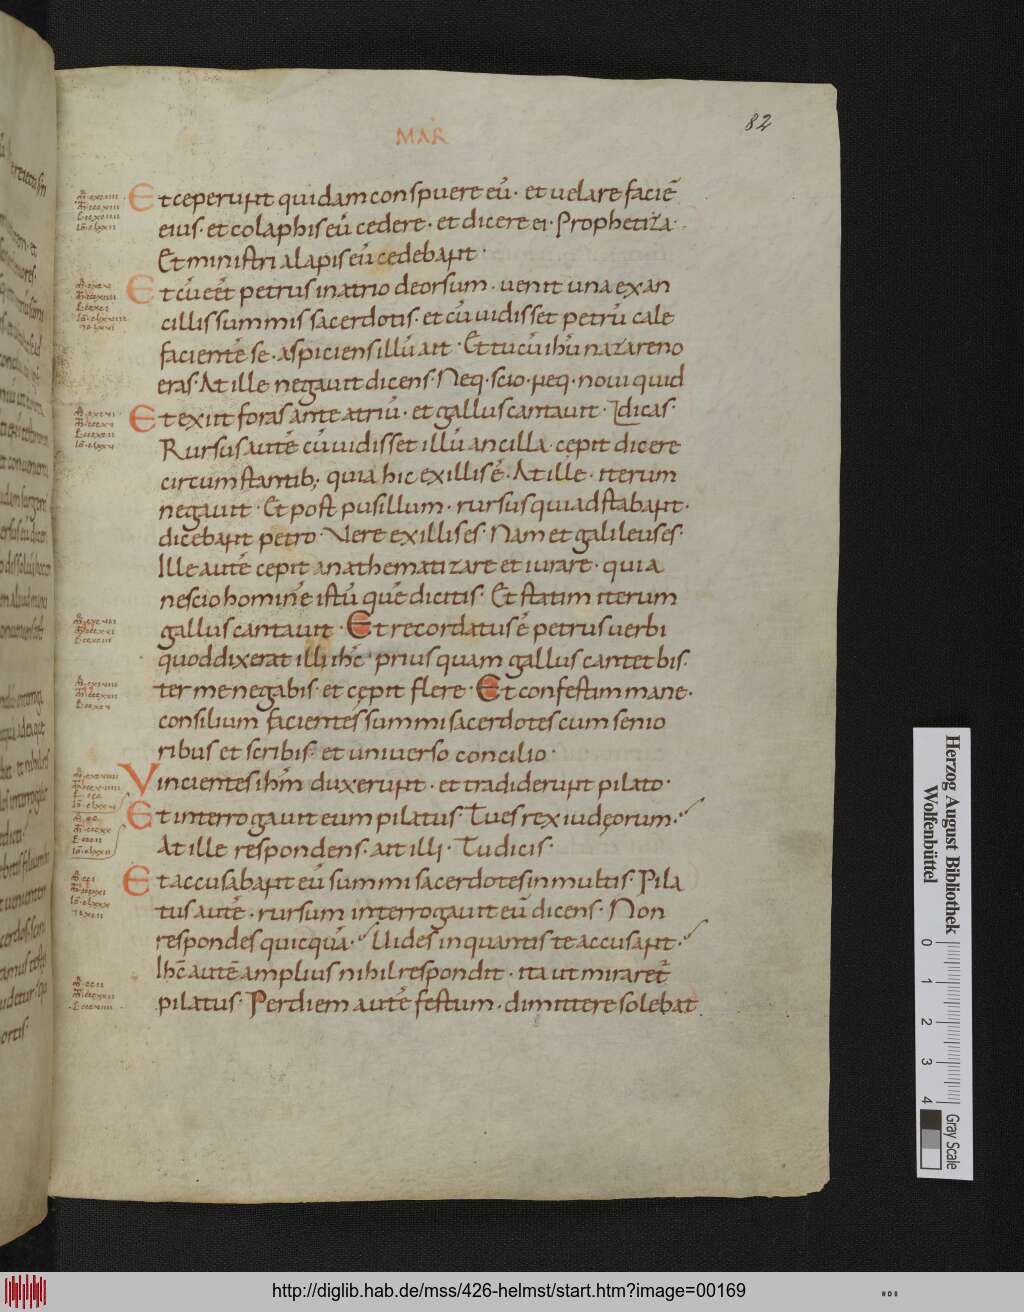 MAR
82
Et ceperunt quidam conspuere eū· et uelare faciē
eius· et colaphis eū cedere· et dicere ei· Prophetiza·
Et ministri alapis eū cedebant·
Et cū eēt petrus in atrio deorsum· uenit una ex an
cillis summis sacerdotis· et cū uidisset petrū cale
facientē se· aspiciens illū ait· Et tu cū ihū nazareno
eras· At ille negauit dicens· Neq· scio· neq· noui quid
Et exiit foras ante atriū· et gallus cantauit· dicas·
Rursus autē cū uidisset illū ancilla· cepit dicere
circumstantib; quia hic ex illis ē· At ille· iterum
negauit· Et post pusillum· rursus qui adstabant·
dicebant petro· Vere ex illis es· Nam et galileus es·
Ille autē cepit anathematizare et iurare· quia
nescio hominē istū quē dicitis· Et statim iterum
gallus cantauit· Et recordatus ē petrus uerbi
quod dixerat illi ihc̄· prius quam gallus cantet bis·
ter me negabis· et cępit flere· Et confestim mane·
consilium facientes summi sacerdotes cum senio
ribus et scribis· et uniuerso concilio·
Vincientes ihm̄ duxerunt· et tradiderunt pilato·
Et interrogauit eum pilatus· Tu es rex iudęorum·
At ille respondens· ait illi· Tu dicis·
Et accusabant eū summi sacerdotes in multis· Pila
tus autē· rursum interrogauit eū dicens· Non
respondes quicquā· Uides in quantis te accusant·
Ihc̄ autē amplius nihil respondit· ita ut miraret̄
pilatus· Per diem autē festum· dimittere solebat
Herzog August Bibliothek
Wolfenbüttel
0 1 2 3 4
Gray Scale
http://diglib.hab.de/mss/426-helmst/start.htm?image=00169